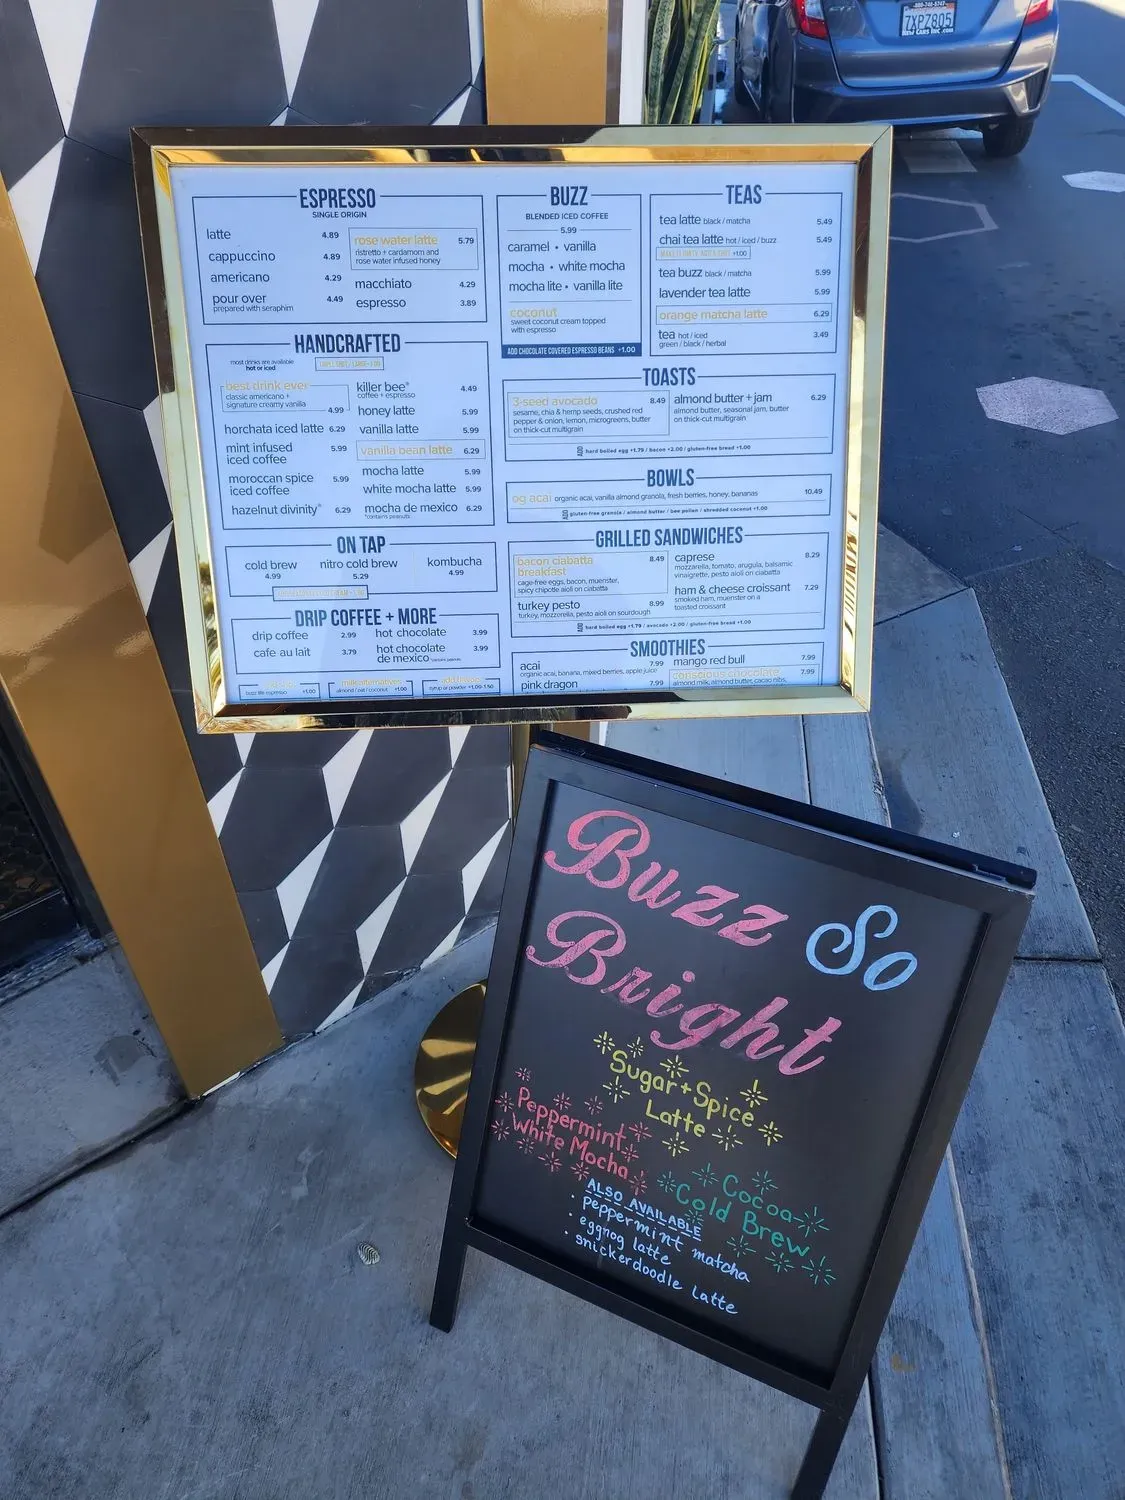 7XPZ805
NEW CARS INC .com
ESPRESSO
SINGLE ORIGIN
latte 4.89
cappuccino 4.89
americano 4.29
pour over 4.49
prepared with seraphim
rose water latte 5.79
ristretto + cardamom and
rose water infused honey
macchiato 4.29
espresso 3.89
HANDCRAFTED
most drinks are available
hot or iced
best drink ever
classic americano +
signature creamy vanilla
4.99
horchata iced latte 6.29
mint infused 5.99
iced coffee
moroccan spice 5.99
iced coffee
hazelnut divinity* 6.29
killer bee* 4.49
coffee + espresso
honey latte 5.99
vanilla latte 5.99
vanilla bean latte 6.29
mocha latte 5.99
white mocha latte 5.99
mocha de mexico 6.29
*contains peanuts
ON TAP
cold brew
4.99
nitro cold brew
5.29
kombucha
4.99
DRIP COFFEE + MORE
drip coffee 2.99
cafe au lait 3.79
hot chocolate 3.99
hot chocolate 3.99
de mexico
buzz life espresso +1.00
milk alternatives
almond / oat / coconut +1.00
syrup or powder +1.00-1.50
BUZZ
BLENDED ICED COFFEE
5.99
caramel • vanilla
mocha • white mocha
mocha lite • vanilla lite
coconut
sweet coconut cream topped
with espresso
ADD CHOCOLATE COVERED ESPRESSO BEANS +1.00
TEAS
tea latte black / matcha 5.49
chai tea latte hot / iced / buzz 5.49
+1.00
tea buzz black / matcha 5.99
lavender tea latte 5.99
orange matcha latte 6.29
tea hot / iced 3.49
green / black / herbal
TOASTS
3-seed avocado 8.49
sesame, chia & hemp seeds, crushed red
pepper & onion, lemon, microgreens, butter
on thick-cut multigrain
almond butter + jam 6.29
almond butter, seasonal jam, butter
on thick-cut multigrain
ADD hard boiled egg +1.79 / bacon +2.00 / gluten-free bread +1.00
BOWLS
og acai organic acai, vanilla almond granola, fresh berries, honey, bananas 10.49
ADD gluten-free granola / almond butter / bee pollen / shredded coconut +1.00
GRILLED SANDWICHES
bacon ciabatta 8.49
breakfast
cage-free eggs, bacon, muenster,
spicy chipotle aioli on ciabatta
turkey pesto 8.99
turkey, mozzarella, pesto aioli on sourdough
caprese 8.29
mozzarella, tomato, arugula, balsamic
vinaigrette, pesto aioli on ciabatta
ham & cheese croissant 7.29
smoked ham, muenster on a
toasted croissant
ADD hard boiled egg +1.79 / avocado +2.00 / gluten-free bread +1.00
SMOOTHIES
acai 7.99
organic acai, banana, mixed berries, apple juice
pink dragon 7.99
mango red bull 7.99
conscious chocolate 7.99
almond milk, almond butter, cacao nibs,
Buzz So
Bright
Sugar + Spice
Latte
Peppermint
White Mocha
Cocoa
Cold Brew
ALSO AVAILABLE
• peppermint matcha
• eggnog latte
• snickerdoodle latte